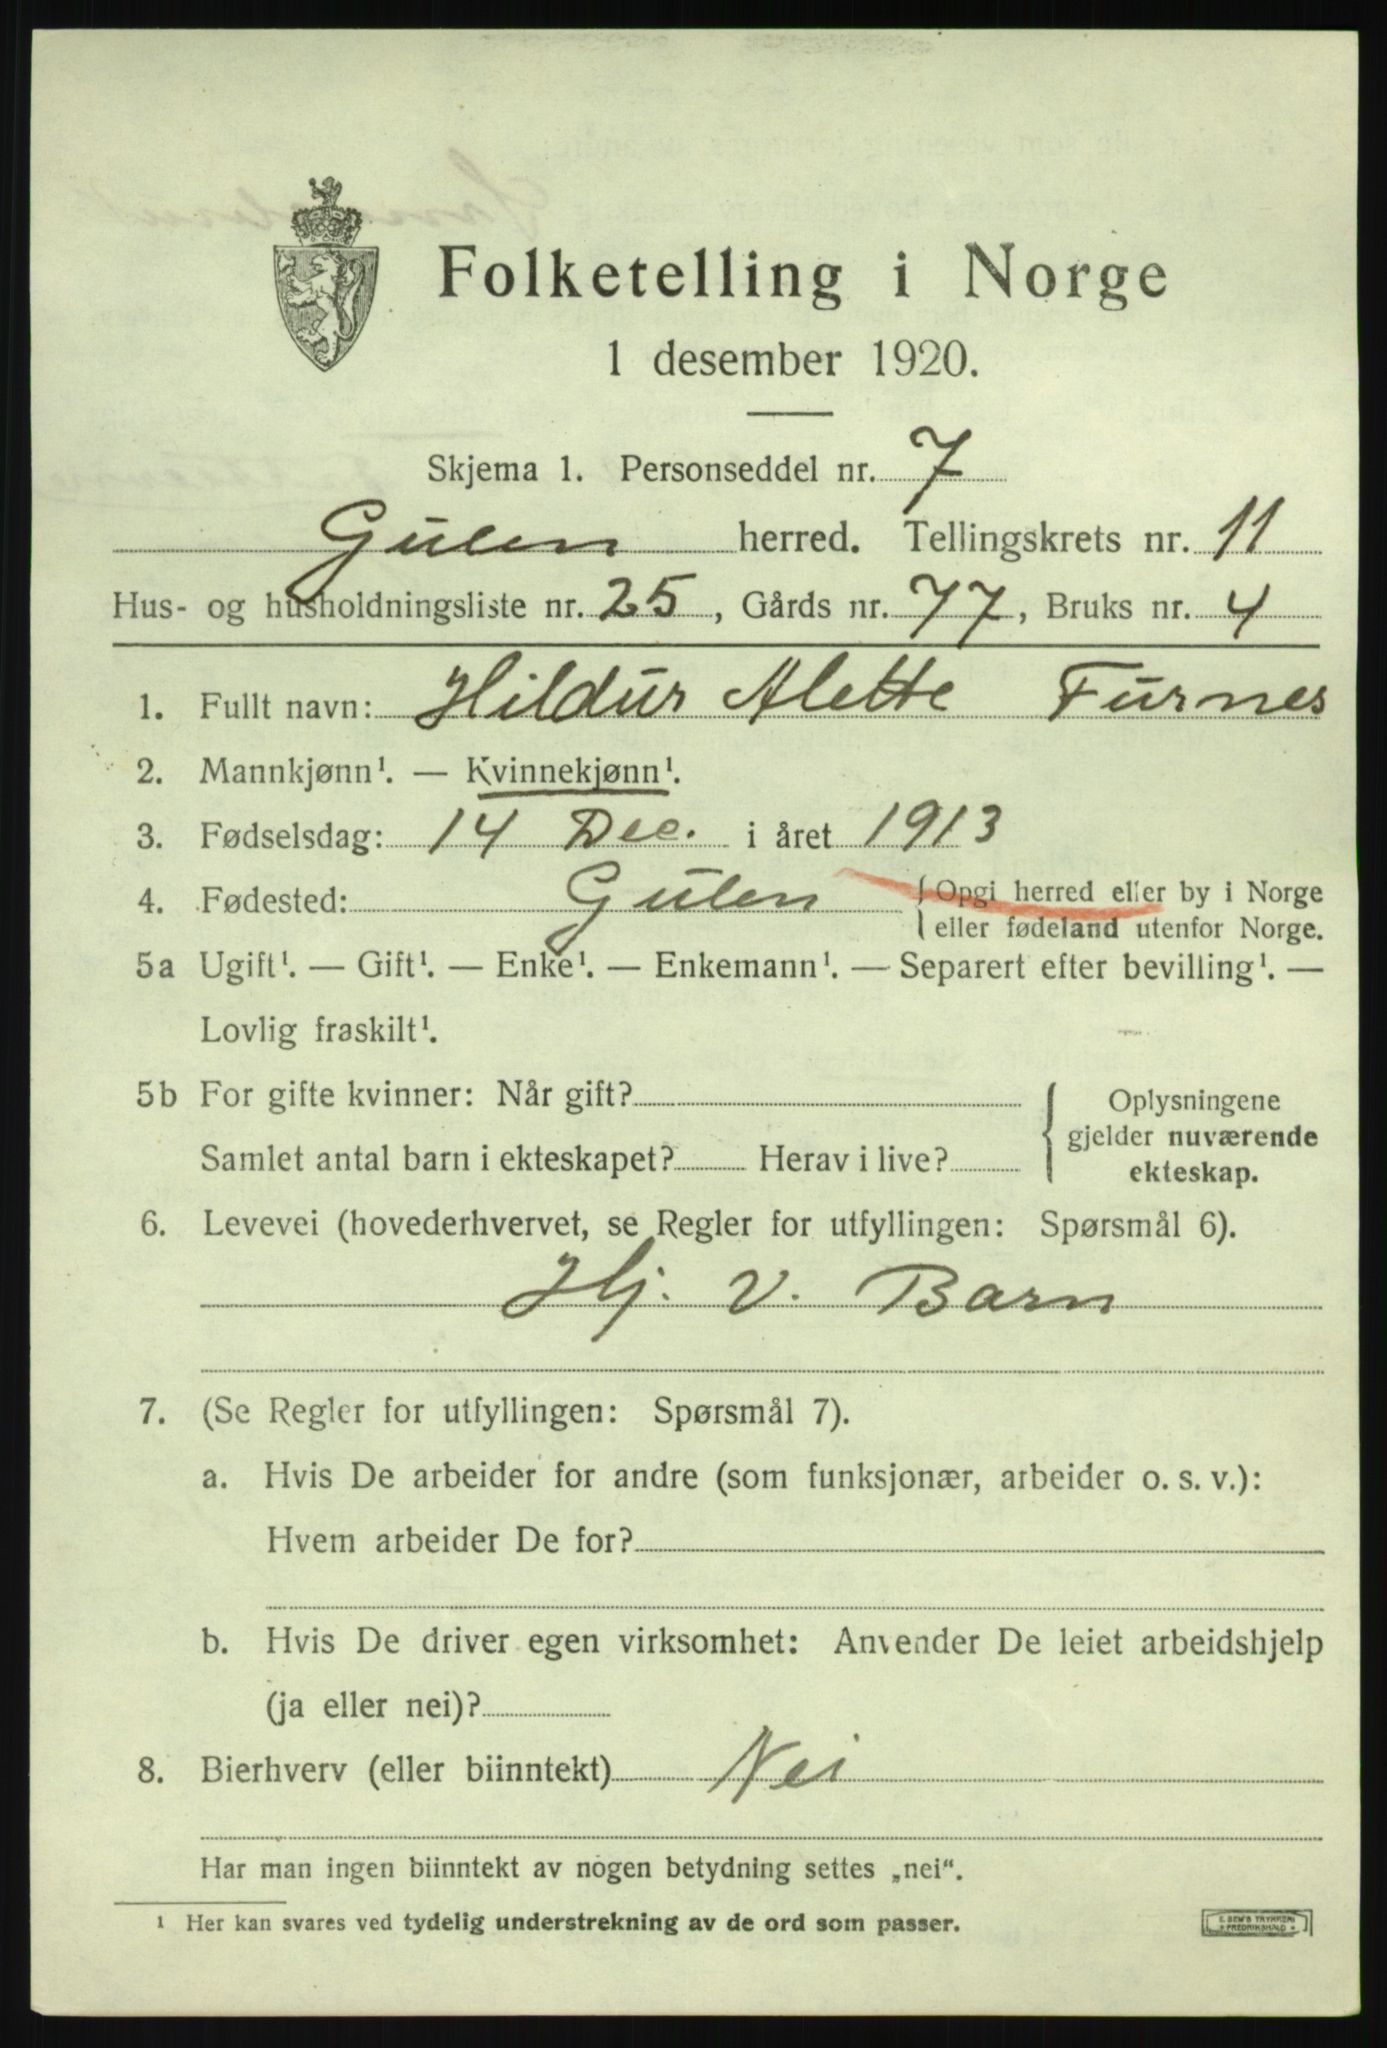 Folketelling i Norge
1 desember 1920.
Skjema 1. Personseddel nr. 7
Gulen herred. Tellingskrets nr. 11
Hus- og husholdningsliste nr. 25, Gårds nr. 77, Bruks nr. 4
1. Fullt navn: Hildur Alette Furnes
2. Mannkjønn¹. — Kvinnekjønn¹.
3. Fødselsdag: 14 Dec. i året 1913
4. Fødested: Gulen { Opgi herred eller by i Norge
eller fødeland utenfor Norge.
5a Ugift¹. — Gift¹. — Enke¹. — Enkemann¹. — Separert efter bevilling¹. —
Lovlig fraskilt¹.
5b For gifte kvinner: Når gift? { Oplysningene
gjelder nuværende
Samlet antal barn i ekteskapet? Herav i live?
ekteskap.
6. Levevei (hovederhvervet, se Regler for utfyllingen: Spørsmål 6).
Hj. V. Barn
7. (Se Regler for utfyllingen: Spørsmål 7).
a. Hvis De arbeider for andre (som funksjonær, arbeider o. s. v.):
Hvem arbeider De for?
b. Hvis De driver egen virksomhet: Anvender De leiet arbeidshjelp
(ja eller nei)?
8. Bierhverv (eller biinntekt) Nei
Har man ingen biinntekt av nogen betydning settes „nei“.
¹ Her kan svares ved tydelig understrekning av de ord som passer.
E. SEM'S TRYKKERI
FREDRIKSHALD